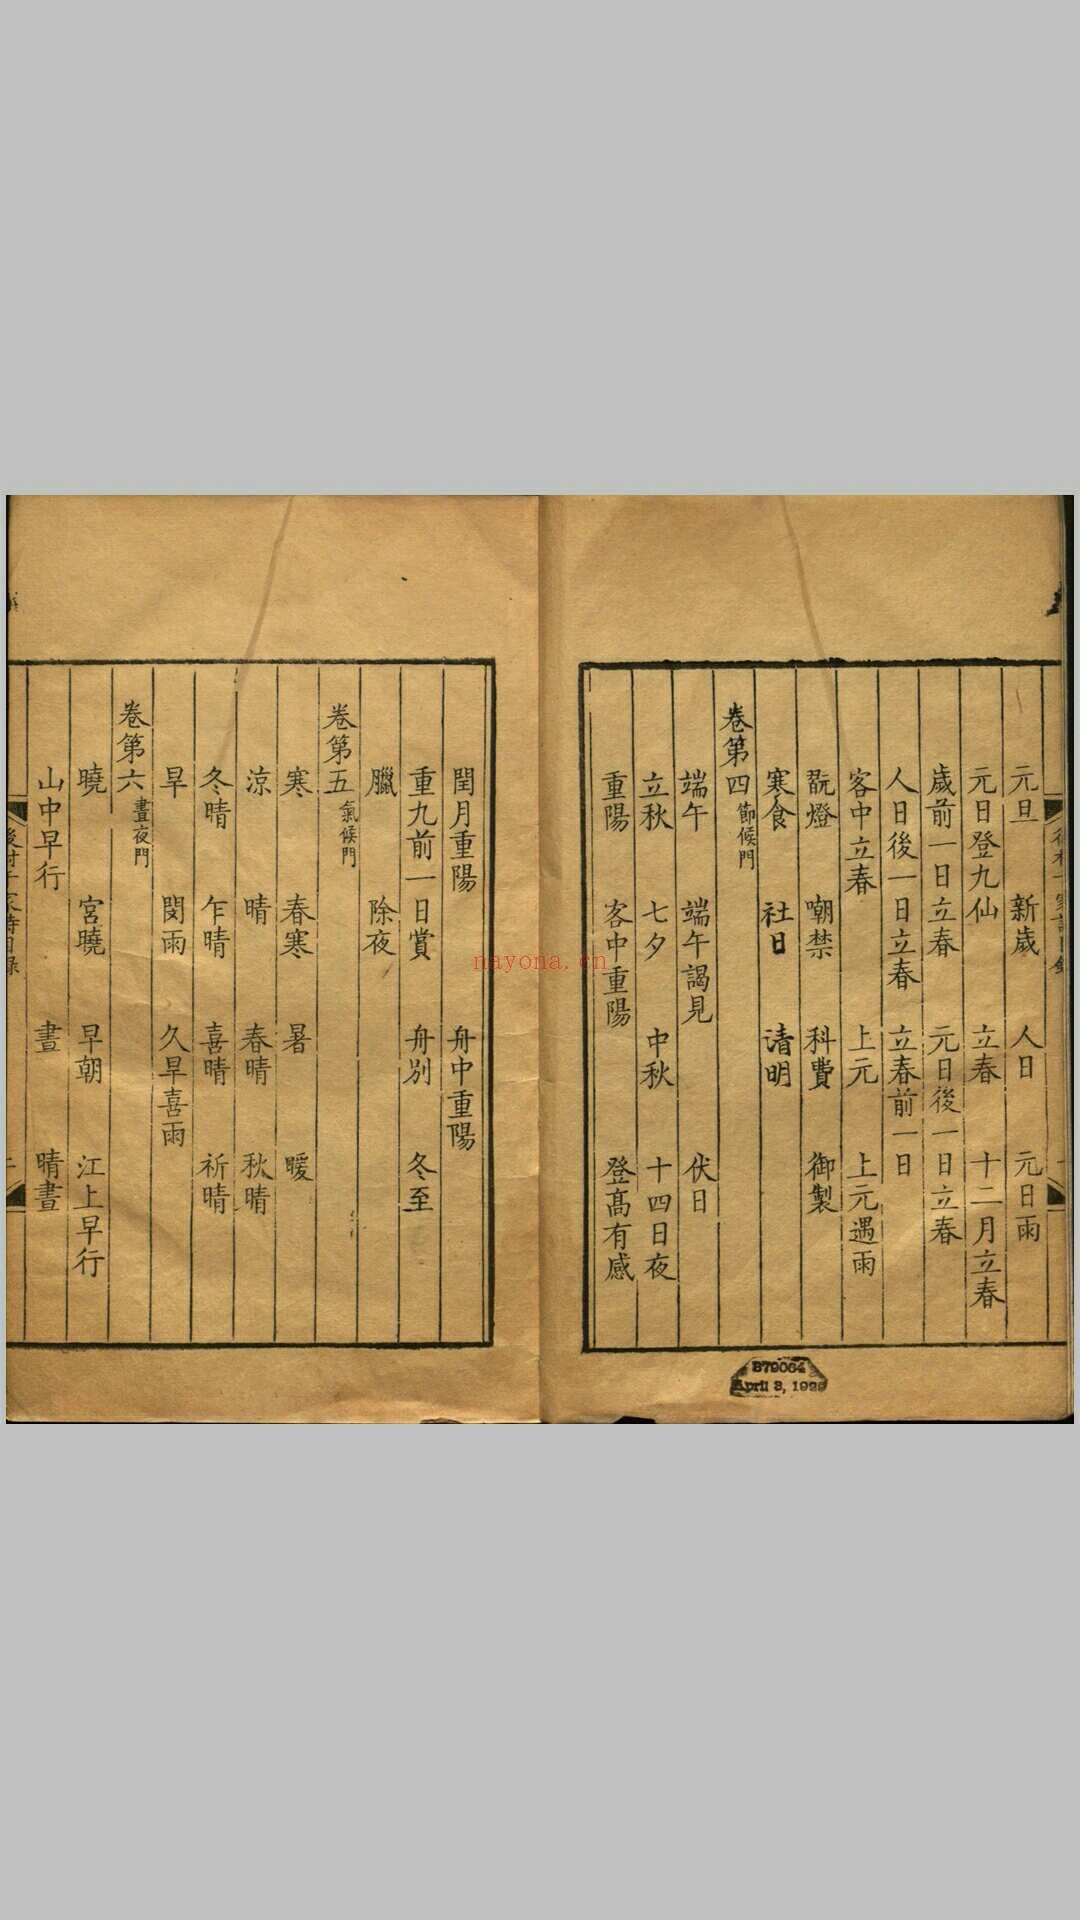 元旦 新歲 人日 元日雨
元日登九仙 立春 十二月立春
歲前一日立春 元日後一日立春
人日後一日立春 立春前一日
客中立春 上元 上元遇雨
翫燈 嘲禁 科費 御製
寒食 社日 清明
卷第四 節候門
端午 端午謁見 伏日
立秋 七夕 中秋 十四日夜
重陽 客中重陽 登高有感
閏月重陽 舟中重陽
重九前一日賞 舟別 冬至
臘 除夜
卷第五 氣候門
寒 春寒 暑 暖
涼 晴 春晴 秋晴
冬晴 乍晴 喜晴 祈晴
旱 閔雨 久旱喜雨
卷第六 晝夜門
曉 宮曉 早朝 江上早行
山中早行 晝 晴晝
nayona.cn
B79064
April 3, 192